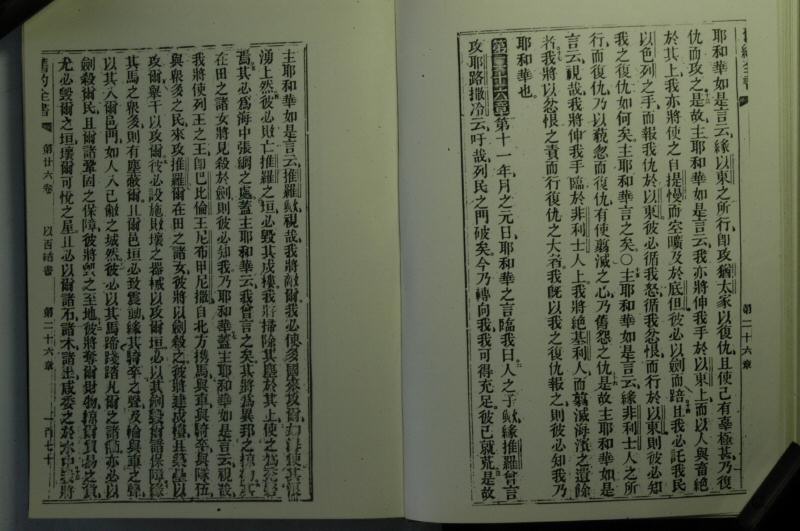 耶和華如是言云緣以東之所行即攻猶太家以復仇且使己有辜極甚乃復
仇而攻之是故主耶和華如是言云我亦將伸我手於以東上而以人與畜絕
於其上我亦將使之自提慢而空曠及於底但彼必以劍而踣且我必託我民
以色列之手而報我仇於以東彼必循我怒循我忿恨而行於以東則彼必知
我之復仇如何矣主耶和華言之矣○主耶和華如是言云緣非利士人之所
行而復仇乃以藐忽而復仇有使翦滅之心乃舊怨之仇是故主耶和華如是
言云視哉我將伸我手臨於非利士人上我將絕基利人而翦滅海濱之遺餘
者我將以忿恨之責而行復仇之大者我既以我之復仇報之則彼必知我乃
耶和華也
第二十六章第十一年月之元日耶和華之言臨我曰人之子歟緣推羅曾言
攻耶路撒冷云吁哉列民之門破矣今乃轉向我我可得充足彼已就荒是故
第二十六章
主耶和華如是言云推羅歟視哉我將敵爾我必使多國來攻爾如海使其浪
湧上然彼必敗亡推羅之垣必毀其戍樓我將掃除其塵於其上使之為
焉其必為海中張網之處蓋主耶和華云我曾言之矣其將為異邦之
在田之諸女將見殺於劍則彼必知我乃耶和華蓋主耶和華如是言云視哉
我將使列王之王即巴比倫王尼布甲尼撒自北方攜馬與車與騎卒與隊伍
與眾多之民來攻推羅爾在田之諸女彼將以劍殺之彼將建戍樓且興壘以
攻爾舉干以攻爾彼必設施敗壞之器械以攻爾垣必以其劍毀爾諸保障緣
其馬之眾多則有塵蔽爾且爾邑垣必致震動緣其騎卒之聲及輪與車之聲
以其入爾邑門如人入已敝之城然彼必以其馬蹄踐踏凡爾之諸街亦必以
劍殺爾民且爾諸鞏固之保障彼將毀之至地彼將奪爾財物掠爾貿易之貨
尤必毀爾之垣壞爾可悅之屋且必以爾諸石諸木諸出咸委之於水中我將
舊約全書 第廿六卷 以西結書 第二十六章 一百七十